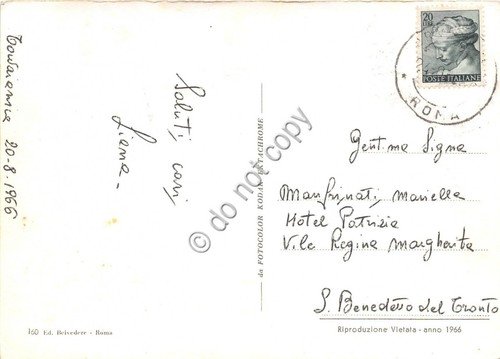 Torvaianica 20-8-1966
Saluti cari
Liana -
160 Ed. Belvedere - Roma
da FOTOCOLOR KODAK EKTACHROME
© do not copy
20
LIRE
POSTE ITALIANE
ROMA
Gent.ma Sig.na
Manfrinati Mariella
Hotel Patrizia
V.le Regina Margherita
S. Benedetto del Tronto
Riproduzione Vietata - anno 1966